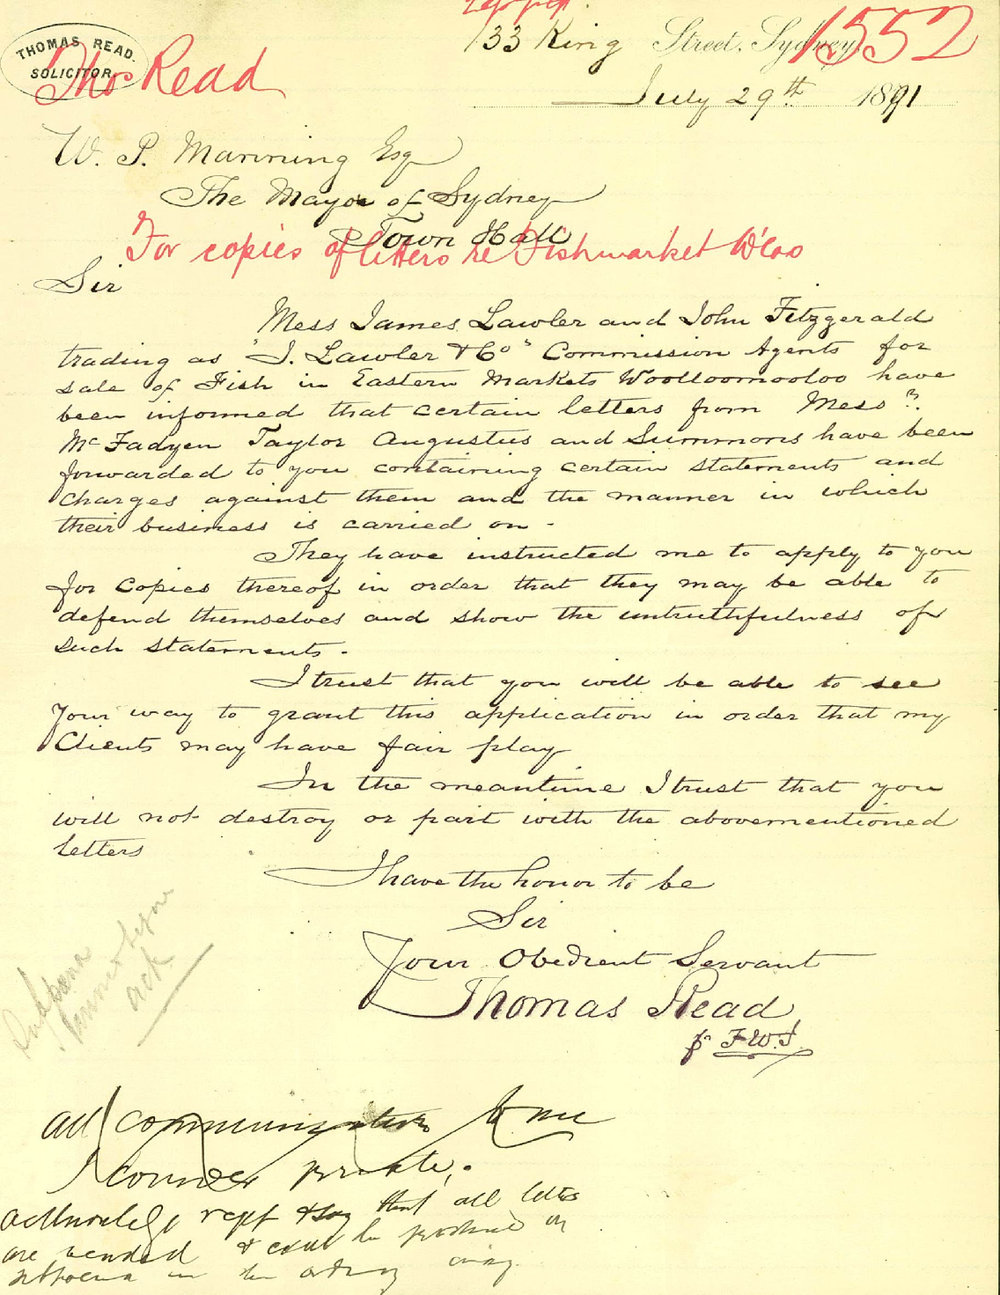 THOMAS READ.
SOLICITOR
Thos Read
133 King Street, Sydney,
1552
July 29th 1891
W. P. Manning Esq
The Mayor of Sydney
Town Hall
For copies of letters re Fishmarket W'loo
Sir
Mess James Lawler and John Fitzgerald
trading as "J. Lawler & Co" Commission Agents for
sale of Fish in Eastern Markets Woolloomooloo have
been informed that certain letters from Messrs.
McFadyen Taylor Augustus and Summons have been
forwarded to you containing certain statements and
charges against them and the manner in which
their business is carried on -
They have instructed me to apply to you
for copies thereof in order that they may be able to
defend themselves and show the untruthfulness of
such statements.
I trust that you will be able to see
your way to grant this application in order that my
Clients may have fair play
In the meantime I trust that you
will not destroy or part with the abovementioned
letters
I have the honor to be
Sir
Your Obedient Servant
Thomas Read
pr F.W.J.
Subpoena
ack
All communications to me
I consider private.
acknowledge rept & say that all letters
are recorded & could be produced on
subpoena in the ordinary way